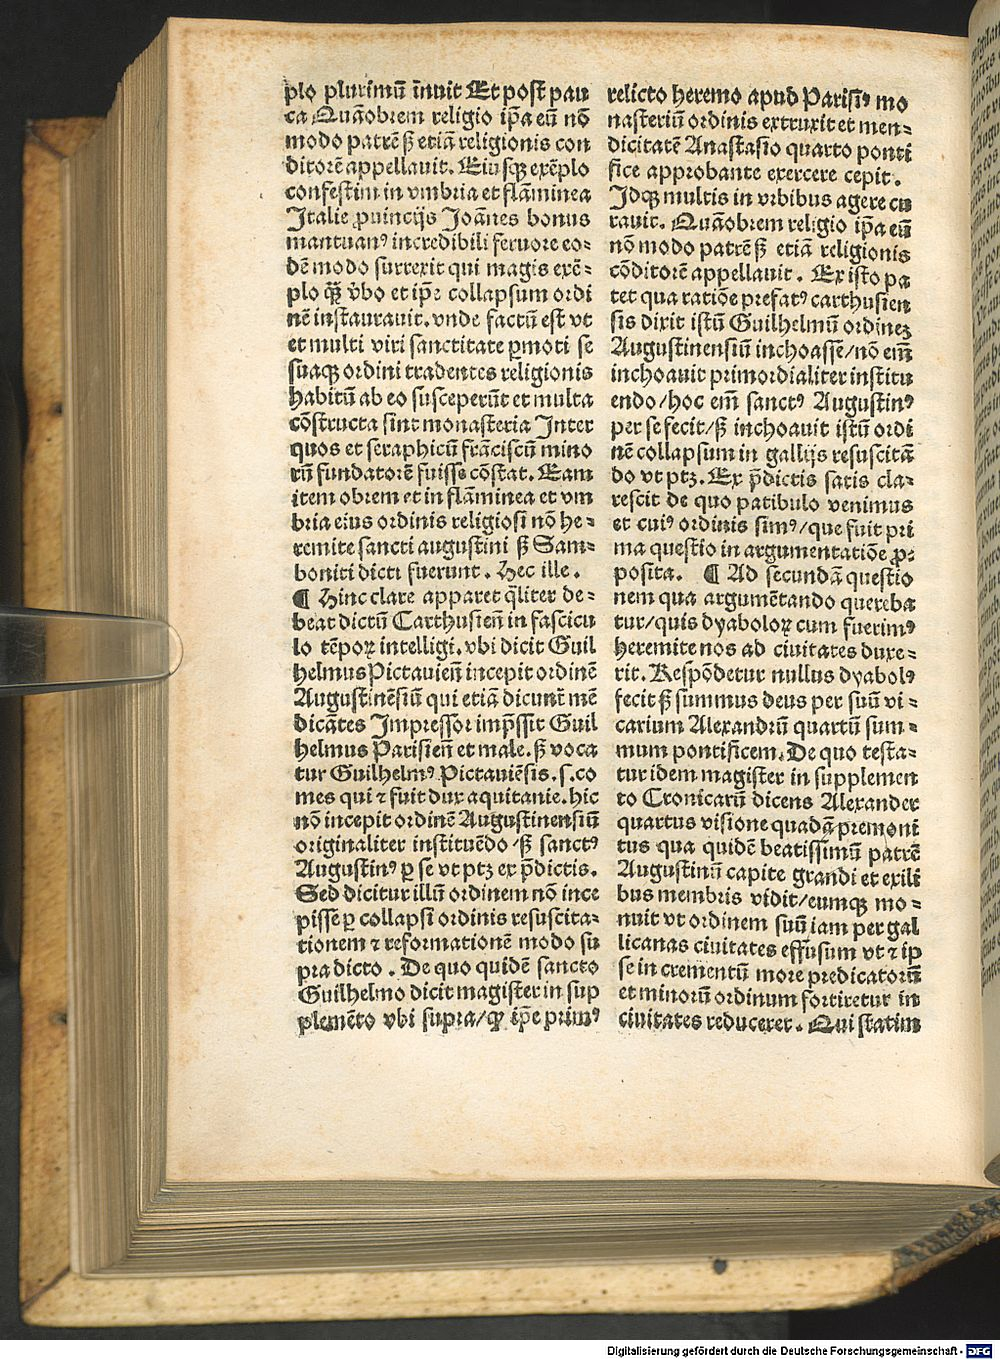 plo plurimū iuuit Et post̄ pau
ca Quāobrem religio ip̄a eū nō
modo patrē sꝫ etiā religionis con
ditorē appellauit. Eiusqꝫ exēplo
confestim in vmbria et flāminea
Italie ꝓuincijs Joānes bonus
mantuanꝰ incredibili feruore eo-
dē modo surrexit qui magis exē-
plo qꝫ̄ v̄bo et ip̄e collapsum ordi
nē instaurauit. vnde factū est vt
et multi viri sanctitate ꝑmoti se
suaqꝫ ordini tradentes religionis
habitū ab eo susceperūt et multa
cōstructa sint monasteria Inter
quos et seraphicū frāciscū mino
rū fundatorē fuisse cōstat. Eam
item obrem et in flāminea et vm
bria eius ordinis religiosi nō he-
remite sancti augustini sꝫ Sam-
boniti dicti fuerunt. Hec ille.
¶ Hinc clare apparet q̄liter de-
beat dictū Carthusieñ in fascicu
lo tēpoꝝ intelligi. vbi dicit Guil
helmus Pictauieñ incepit ordinē
Augustinēsiū qui etiā dicunt̄ mē
dicātes Impressor imp̄ssit Guil
helmus Parisieñ et male. sꝫ voca
tur Guilhelmꝰ Pictauiēsis. s. co
mes qui ⁊ fuit dux aquitanie. hic
nō incepit ordinē Augustinensiū
originaliter instituēdo sꝫ sanctꝰ
Augustinꝰ ꝑ se vt ptꝫ ex p̄dictis.
Sed dicitur illū ordinem nō ince
pisse ꝑ collapsi ordinis resuscita-
tionem ⁊ reformationē modo su
pra dicto. De quo quidē sancto
Guilhelmo dicit magister in sup
plemēto vbi supra/ꝙ ip̄e primꝰ
relicto heremo apud Parisiꝰ mo
nasteriū ordinis extruxit et men-
dicitatē Anastasio quarto ponti
fice approbante exercere cepit.
Idqꝫ multis in vrbibus agere cu
rauit. Quāobrem religio ip̄a eū
nō modo patrē sꝫ etiā religionis
cōditorē appellauit. Ex isto pa
tet qua ratiōe prefatꝰ carthusien
sis dixit istū Guilhelmū ordinē
Augustinensiū inchoasse/nō em̄
inchoauit primordialiter institu
endo/hoc em̄ sanctꝰ Augustinꝰ
per se fecit/sꝫ inchoauit istū ordi
nē collapsum in gallijs resuscitā
do vt ptꝫ. Ex p̄dictis satis cla-
rescit de quo patibulo venimus
et cuiꝰ ordinis simꝰ/que fuit pri
ma questio in argumentatiōe ꝓ-
posita. ¶ Ad secundā questio
nem qua argumētando quereba
tur/quis dyaboloꝝ cum fuerimꝰ
heremite nos ad ciuitates duxe-
rit. Respōdetur nullus dyabolꝰ
fecit sꝫ summus deus per suū vi-
carium Alexandrū quartū sum-
mum pontificem. De quo testa-
tur idem magister in supplemen
to Cronicarū dicens Alexander
quartus visione quadā premoni
tus qua quidē beatissimū patrē
Augustinū capite grandi et exili
bus membris vidit/eumqꝫ mo-
nuit vt ordinem suū iam per gal
licanas ciuitates effusum vt ⁊ ip
se in crementū more predicatorū
et minorū ordinum fortiretur in
ciuitates reduceret. Qui statim
Digitalisierung gefördert durch die Deutsche Forschungsgemeinschaft - DFG